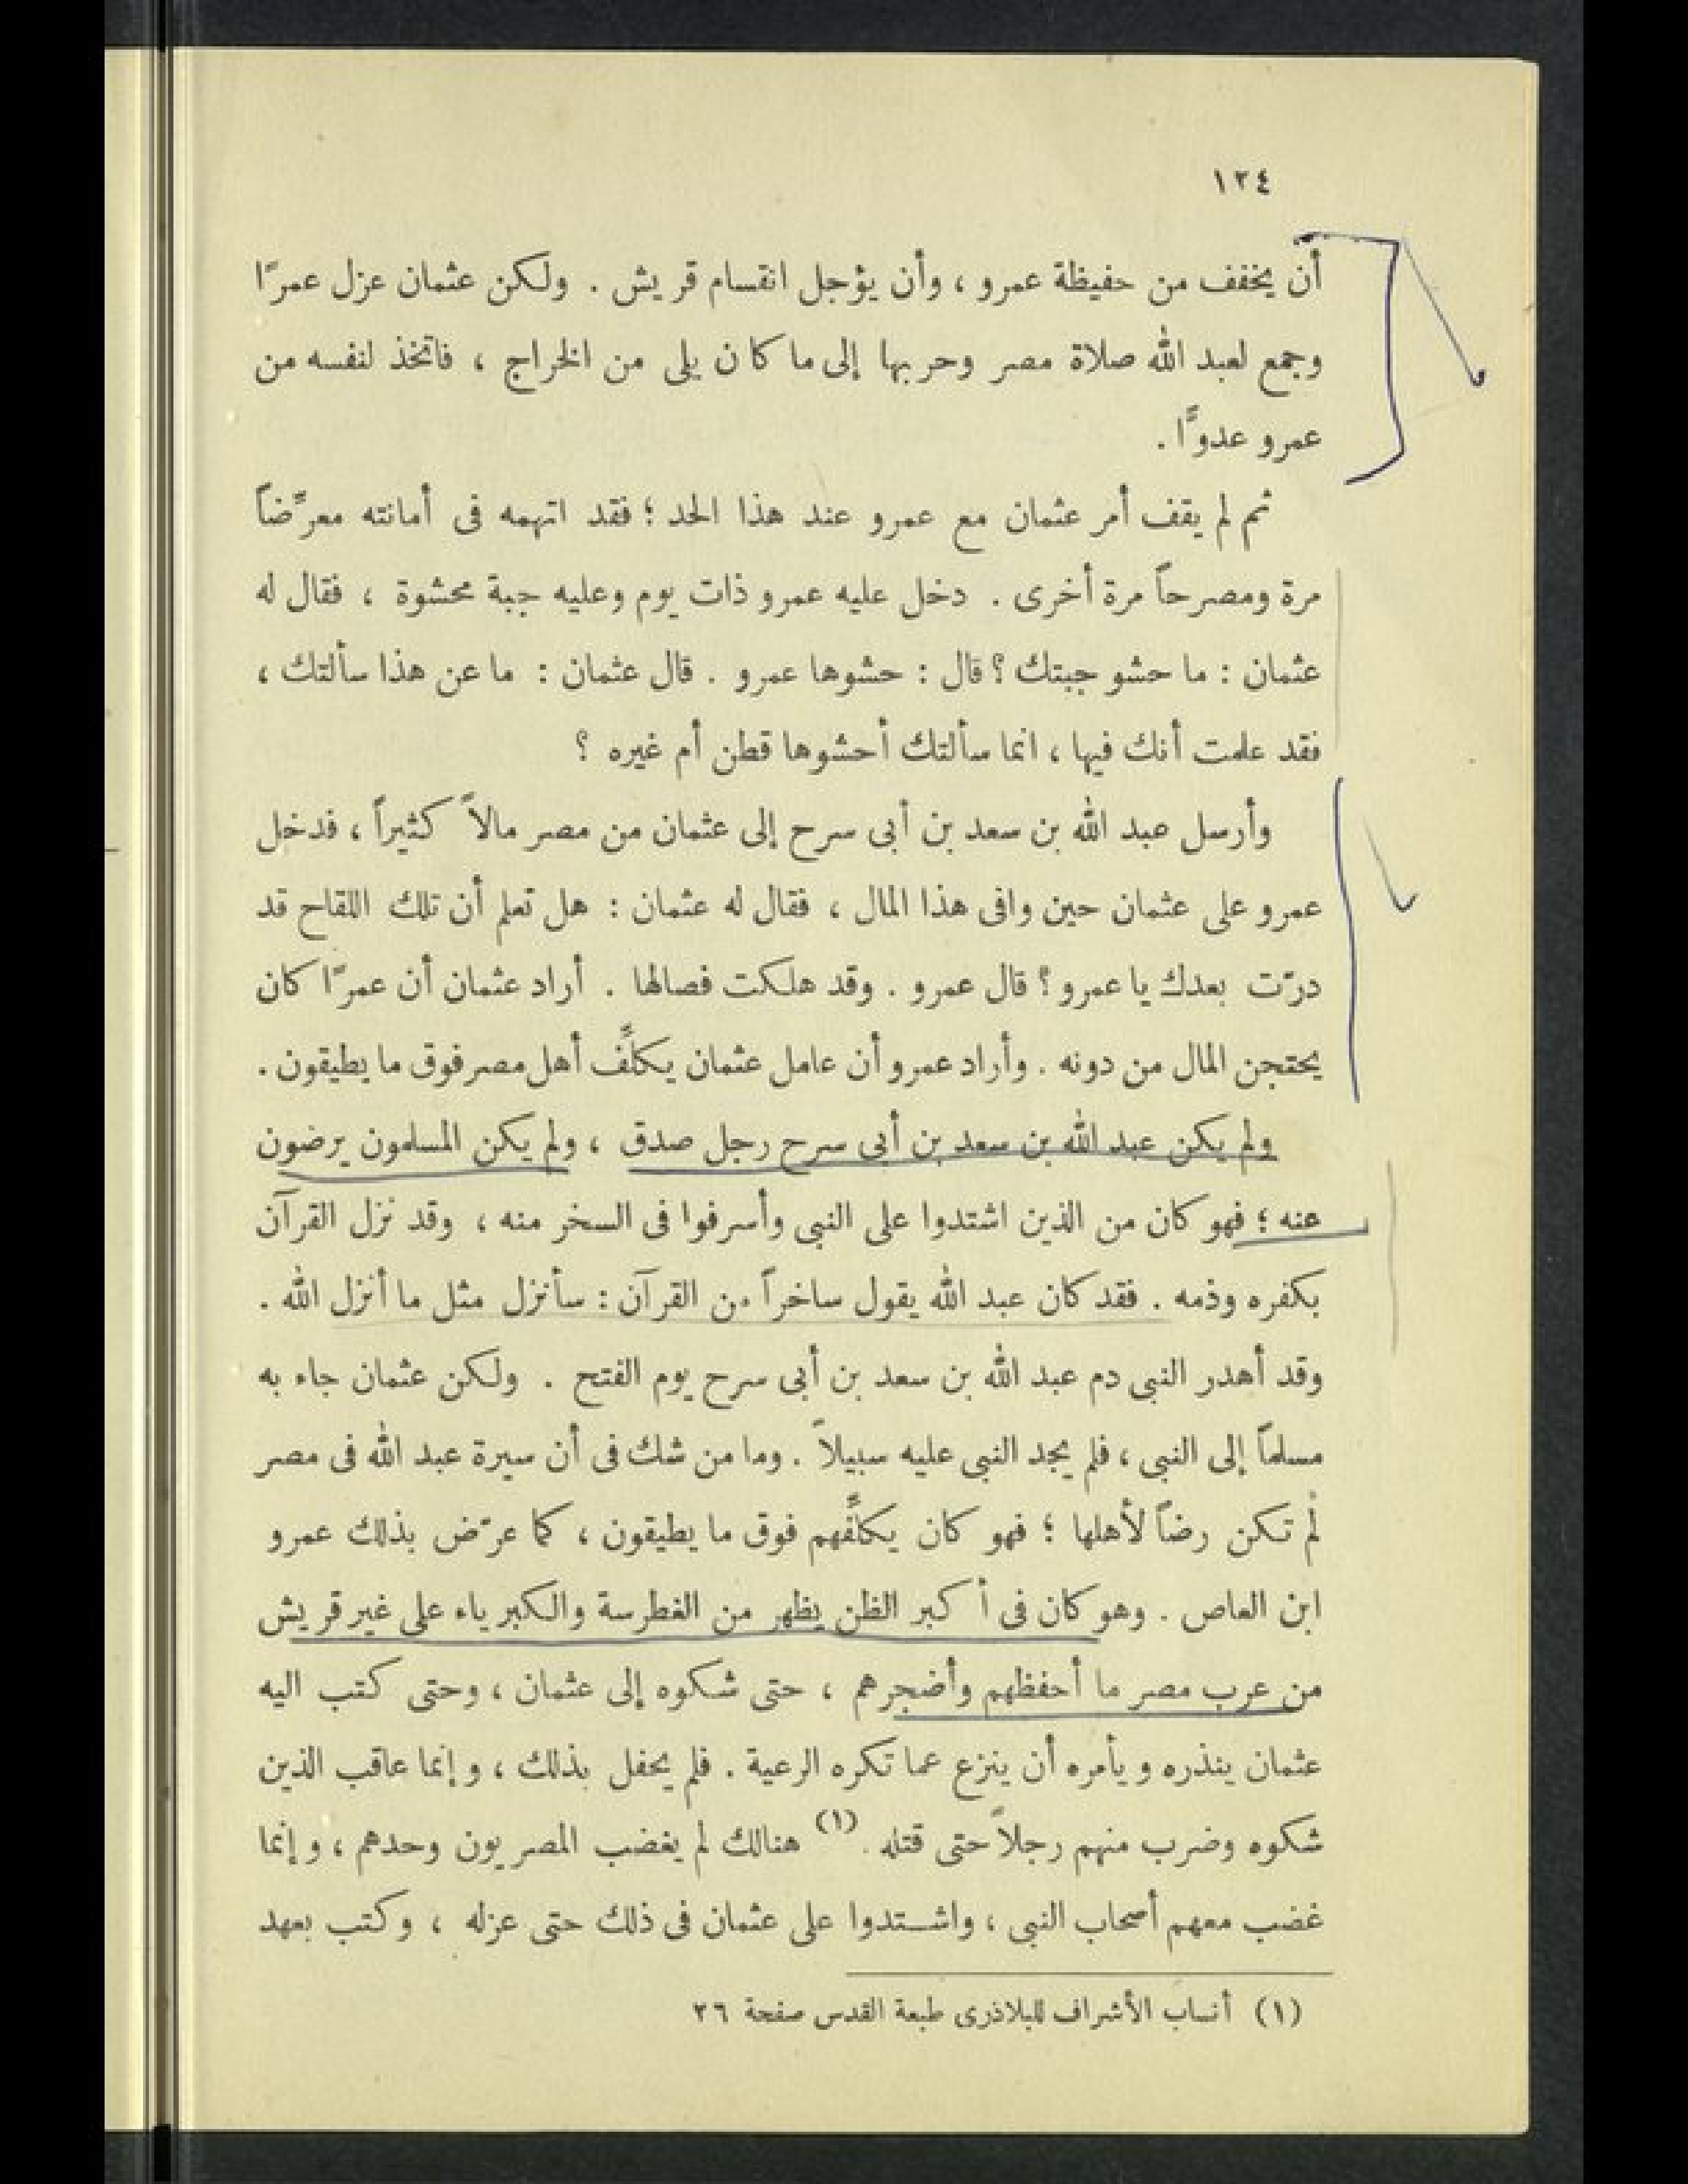 ١٢٤
أن يخفف من حفيظة عمرو ، وأن يؤجل انقسام قريش . ولكن عثمان عزل عمرًا
وجمع لعبد الله صلاة مصر وحربها إلى ما كان يلى من الخراج ، فاتخذ لنفسه من
عمرو عدوًّا .
ثم لم يقف أمر عثمان مع عمرو عند هذا الحد ؛ فقد اتهمه فى أمانته معرِّضاً
مرة ومصرحاً مرة أخرى . دخل عليه عمرو ذات يوم وعليه جبة محشوة ، فقال له
عثمان : ما حشو جبتك ؟ قال : حشوها عمرو . قال عثمان : ما عن هذا سألتك ،
فقد علمت أنك فيها ، انما سألتك أحشوها قطن أم غيره ؟
وأرسل عبد الله بن سعد بن أبى سرح إلى عثمان من مصر مالاً كثيراً ، فدخل
عمرو على عثمان حين وافى هذا المال ، فقال له عثمان : هل تعلم أن تلك اللقاح قد
درّت بعدك يا عمرو ؟ قال عمرو . وقد هلكت فصالها . أراد عثمان أن عمرًا كان
يحتجن المال من دونه . وأراد عمرو أن عامل عثمان يكلِّف أهل مصر فوق ما يطيقون .
ولم يكن عبد الله بن سعد بن أبى سرح رجل صدق ، ولم يكن المسلمون يرضون
عنه ؛ فهو كان من الذين اشتدوا على النبى وأسرفوا فى السخر منه ، وقد نزل القرآن
بكفره وذمه . فقد كان عبد الله يقول ساخراً من القرآن : سأنزل مثل ما أنزل الله .
وقد أهدر النبى دم عبد الله بن سعد بن أبى سرح يوم الفتح . ولكن عثمان جاء به
مسلماً إلى النبى ، فلم يجد النبى عليه سبيلاً . وما من شك فى أن سيرة عبد الله فى مصر
لم تكن رضاً لأهلها ؛ فهو كان يكلِّفهم فوق ما يطيقون ، كما عرّض بذلك عمرو
ابن العاص . وهو كان فى أكبر الظن يظهر من الغطرسة والكبرياء على غير قريش
من عرب مصر ما أحفظهم وأضجرهم ، حتى شكوه إلى عثمان ، وحتى كتب اليه
عثمان ينذره ويأمره أن ينزع عما تكره الرعية . فلم يحفل بذلك ، وإنما عاقب الذين
شكوه وضرب منهم رجلاً حتى قتله .(١) هنالك لم يغضب المصريون وحدهم ، وإنما
غضب معهم أصحاب النبى ، واشتدوا على عثمان فى ذلك حتى عزله ، وكتب بعهد
(١) أنساب الأشراف للبلاذرى طبعة القدس صفحة ٢٦